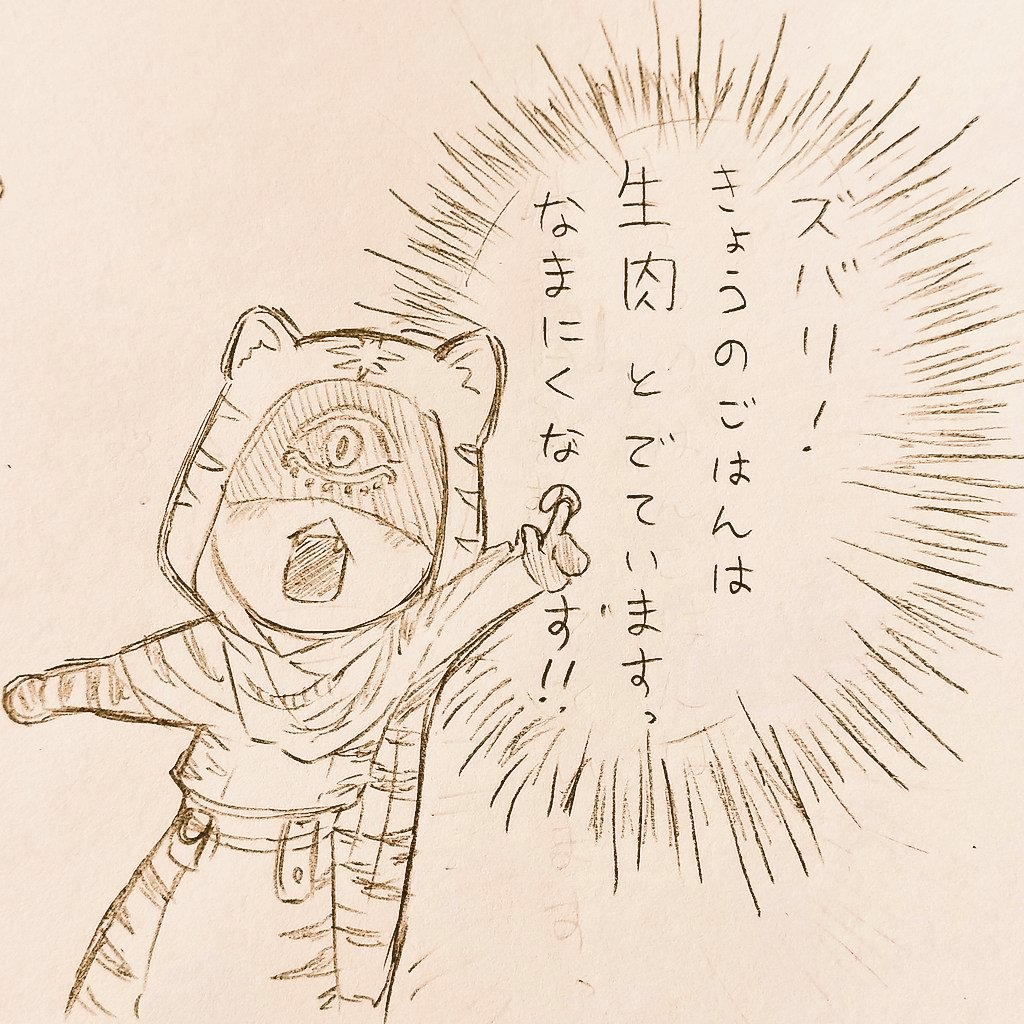 ズバリ!
きょうのごはんは
生肉とでています。
なまにくなのです!!